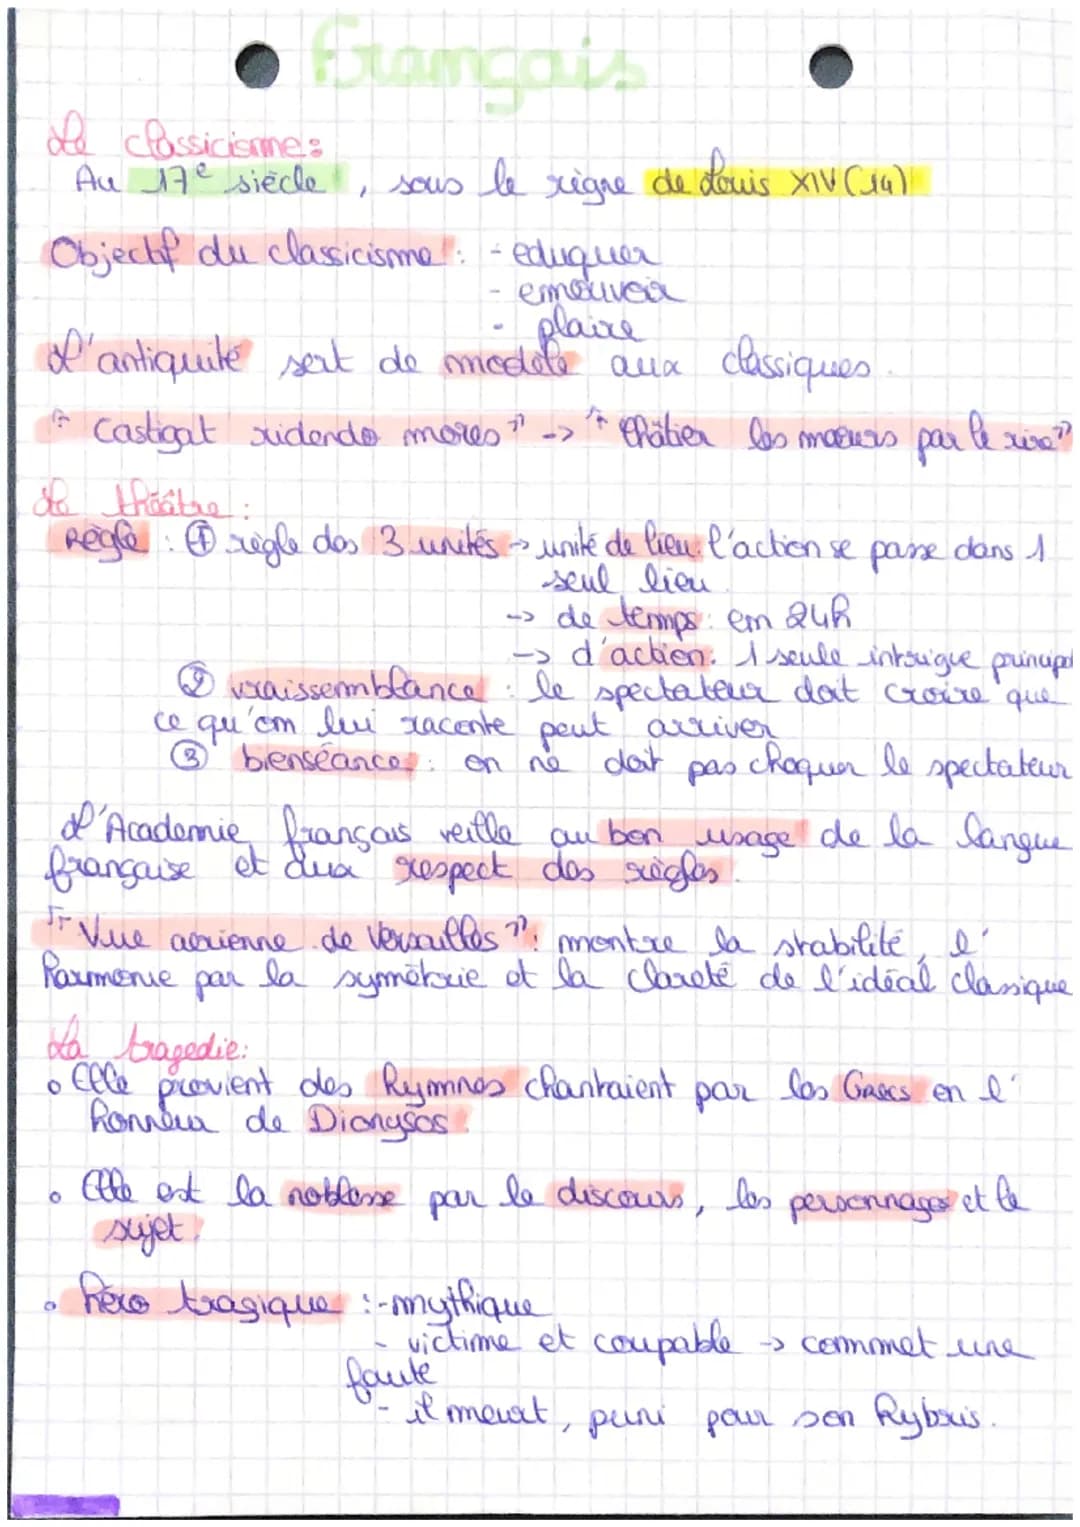 Français
Le classicisme:
Au 17e siècle, sous le règne de Louis XIV (14)
Objectif du classicisme : - eduquer
- emouvoir
- plaire
L'antiquité sert de modèle aux classiques.
" Castigat ridendo mores " -> " Châtier les mœurs par le rire"
Le théâtre :
Règle : ① règle des 3 unités -> unité de lieu: l'action se passe dans 1
seul lieu
-> de temps: en 24h
-> d'action: 1 seule intrigue principal
② vraissemblance : le spectateur doit croire que
ce qu'on lui raconte peut arriver
③ bienséance : on ne doit pas choquer le spectateur
L'Academie français veille au bon usage de la langue
française et dux respect des règles.
" Vue aérienne de Versailles ": montre la stabilité, l'
harmonie par la symétrie et la clareté de l'idéal classique
La tragedie:
• Elle provient des hymnes chantaient par les Grecs en l'
honneur de Dionysos.
• Elle est la noblesse par le discours, les personnages et le
sujet.
• héro tragique : - mythique
- victime et coupable -> commet une
faute
- il meurt, puni pour son hybris.